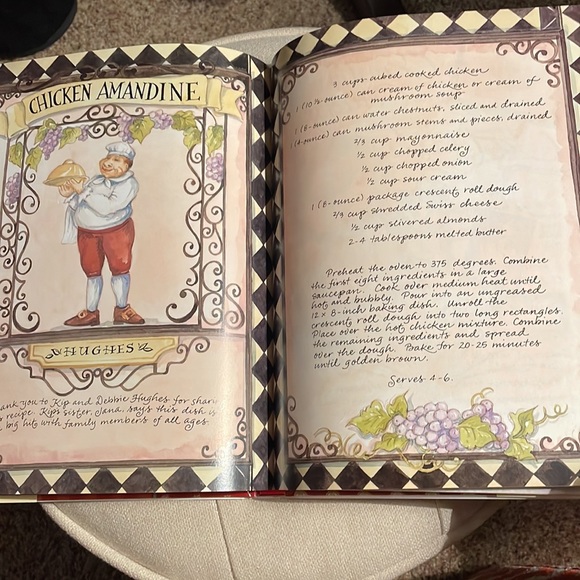 CHICKEN AMANDINE
HUGHES
ank you to Kip and Debbie Hughes for shari
s recipe. Kip's sister, Jana, says this dish is
big hit with family members of all ages.
3 cups cubed cooked chicken
1 (10 ¾-ounce) can cream of chicken or cream of
mushroom soup
1 (8-ounce) can water chestnuts, sliced and drained
1 (4-ounce) can mushroom stems and pieces, drained
2/3 cup mayonnaise
½ cup chopped celery
½ cup chopped onion
½ cup sour cream
1 (8-ounce) package crescent roll dough
2/3 cup shredded Swiss cheese
½ cup slivered almonds
2-4 tablespoons melted butter
Preheat the oven to 375 degrees. Combine
the first eight ingredients in a large
saucepan. Cook over medium heat until
hot and bubbly. Pour into an ungreased
12 x 8-inch baking dish. Unroll the
crescent roll dough into two long rectangles.
Place over the hot chicken mixture. Combine
the remaining ingredients and spread
over the dough. Bake for 20-25 minutes
until golden brown.
Serves 4-6.